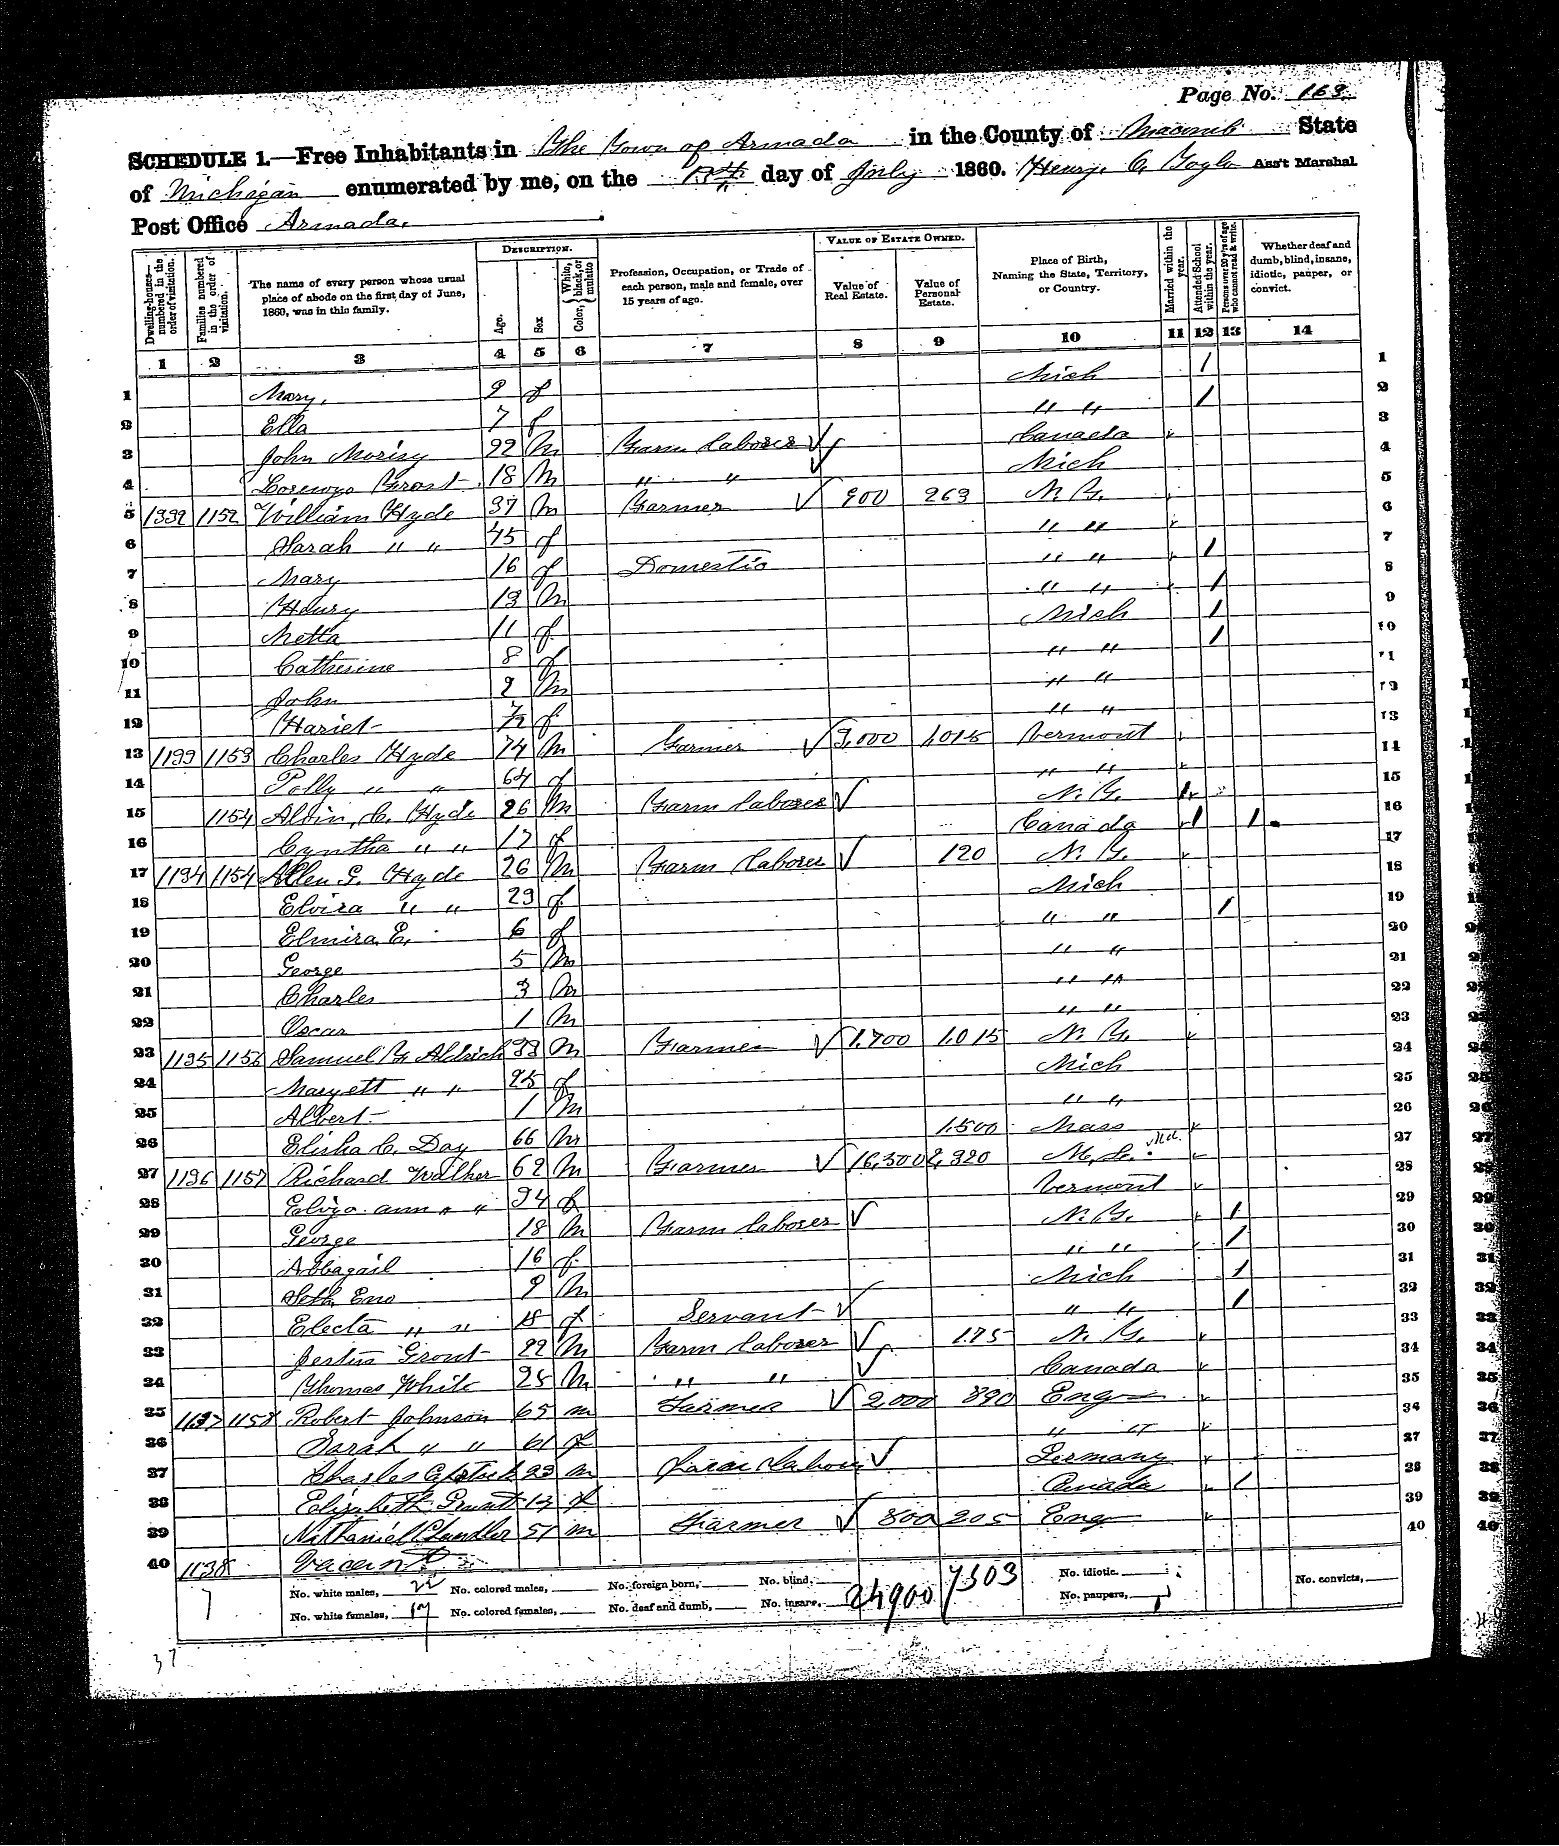 Page No. 163.
SCHEDULE 1.—Free Inhabitants in The Town of Armada in the County of Macomb State
of Michigan enumerated by me, on the day of July 1860. Henry C. Ass't Marshal
Post Office Armada.
Dwelling-houses—numbered in the order of visitation.
Families numbered in the order of visitation.
The name of every person whose usual place of abode on the first day of June, 1860, was in this family.
DESCRIPTION.
Age.
Sex
Color, { White, black, or mulatto
Profession, Occupation, or Trade of each person, male and female, over 15 years of age.
VALUE OF ESTATE OWNED.
Value of Real Estate.
Value of Personal Estate.
Place of Birth, Naming the State, Territory, or Country.
Married within the year.
Attended School within the year.
Persons over 20 y'rs of age who cannot read & write.
Whether deaf and dumb, blind, insane, idiotic, pauper, or convict.
1 2 3 4 5 6 7 8 9 10 11 12 13 14
1 Mary, 9 f Mich / 1
2 Ella 7 f " " / 2
3 John Morisy 22 M Farm Laborer Canada 3
4 Lorenzo 18 M " " Mich 4
5 1132 1152 William Hyde 37 M Farmer 900 263 N. Y. 5
6 Sarah " " 45 f " " 6
7 Mary 16 f Domestic " " / 7
8 Henry 13 M " " / 8
9 Metta 11 f Mich / 9
10 Catherine 8 f " " / 10
11 John 2 M " " 11
12 Hariet f " " 12
13 1133 1153 Charles Hyde 74 M Farmer 3,000 1,015 Vermont 13
14 Polly " " 64 f " " 14
15 1154 Alvin, C. Hyde 26 M Farm Laborer N. Y. 15
16 Cyntha " " 17 f Canada / / 16
17 1134 1154 Allen G. Hyde 26 M Farm Laborer 120 N. Y. 17
18 Elvira " " 23 f Mich 18
19 Elmira E. 6 f " " / 19
20 George 5 M " " 20
21 Charles 3 M " " 21
22 Oscar 1 M " " 22
23 1135 1156 Samuel F. Aldrich 33 M Farmer 1,700 1,015 N. Y. 23
24 Maryett " " 25 f Mich 24
25 Albert 1 M " " 25
26 Elisha C. Day 66 M 1,500 Mass 26
27 1136 1157 Richard Walker 62 M Farmer 16,500 2,320 27
28 Eliza ann " " 34 f Vermont 28
29 George 18 M Farm Laborer N. Y. / 29
30 Abbagail 16 f " " / 30
31 Seth Eno 9 M Mich / 31
32 Electa " " 18 f Servant " " / 32
33 Jestus Grout 22 M Farm Laborer 175 N. Y. 33
34 Thomas White 25 M " " Canada 34
35 1137 1158 Robert Johnson 65 m Farmer 2,000 890 Eng 35
36 Sarah " " 61 f " " 34
37 Charles 23 m Farm Labour Germany 27
38 Elizabeth 13 f Canada / 28
39 Nathaniel Chandler 51 m Farmer 800 205 Eng 39
40 1138 Vacant 40
No. white males, 22 No. colored males, No. foreign born, No. blind, 24900 7303 No. idiotic No. convicts,
No. white females, 17 No. colored females, No. deaf and dumb, No. insane, No. paupers,
7
37